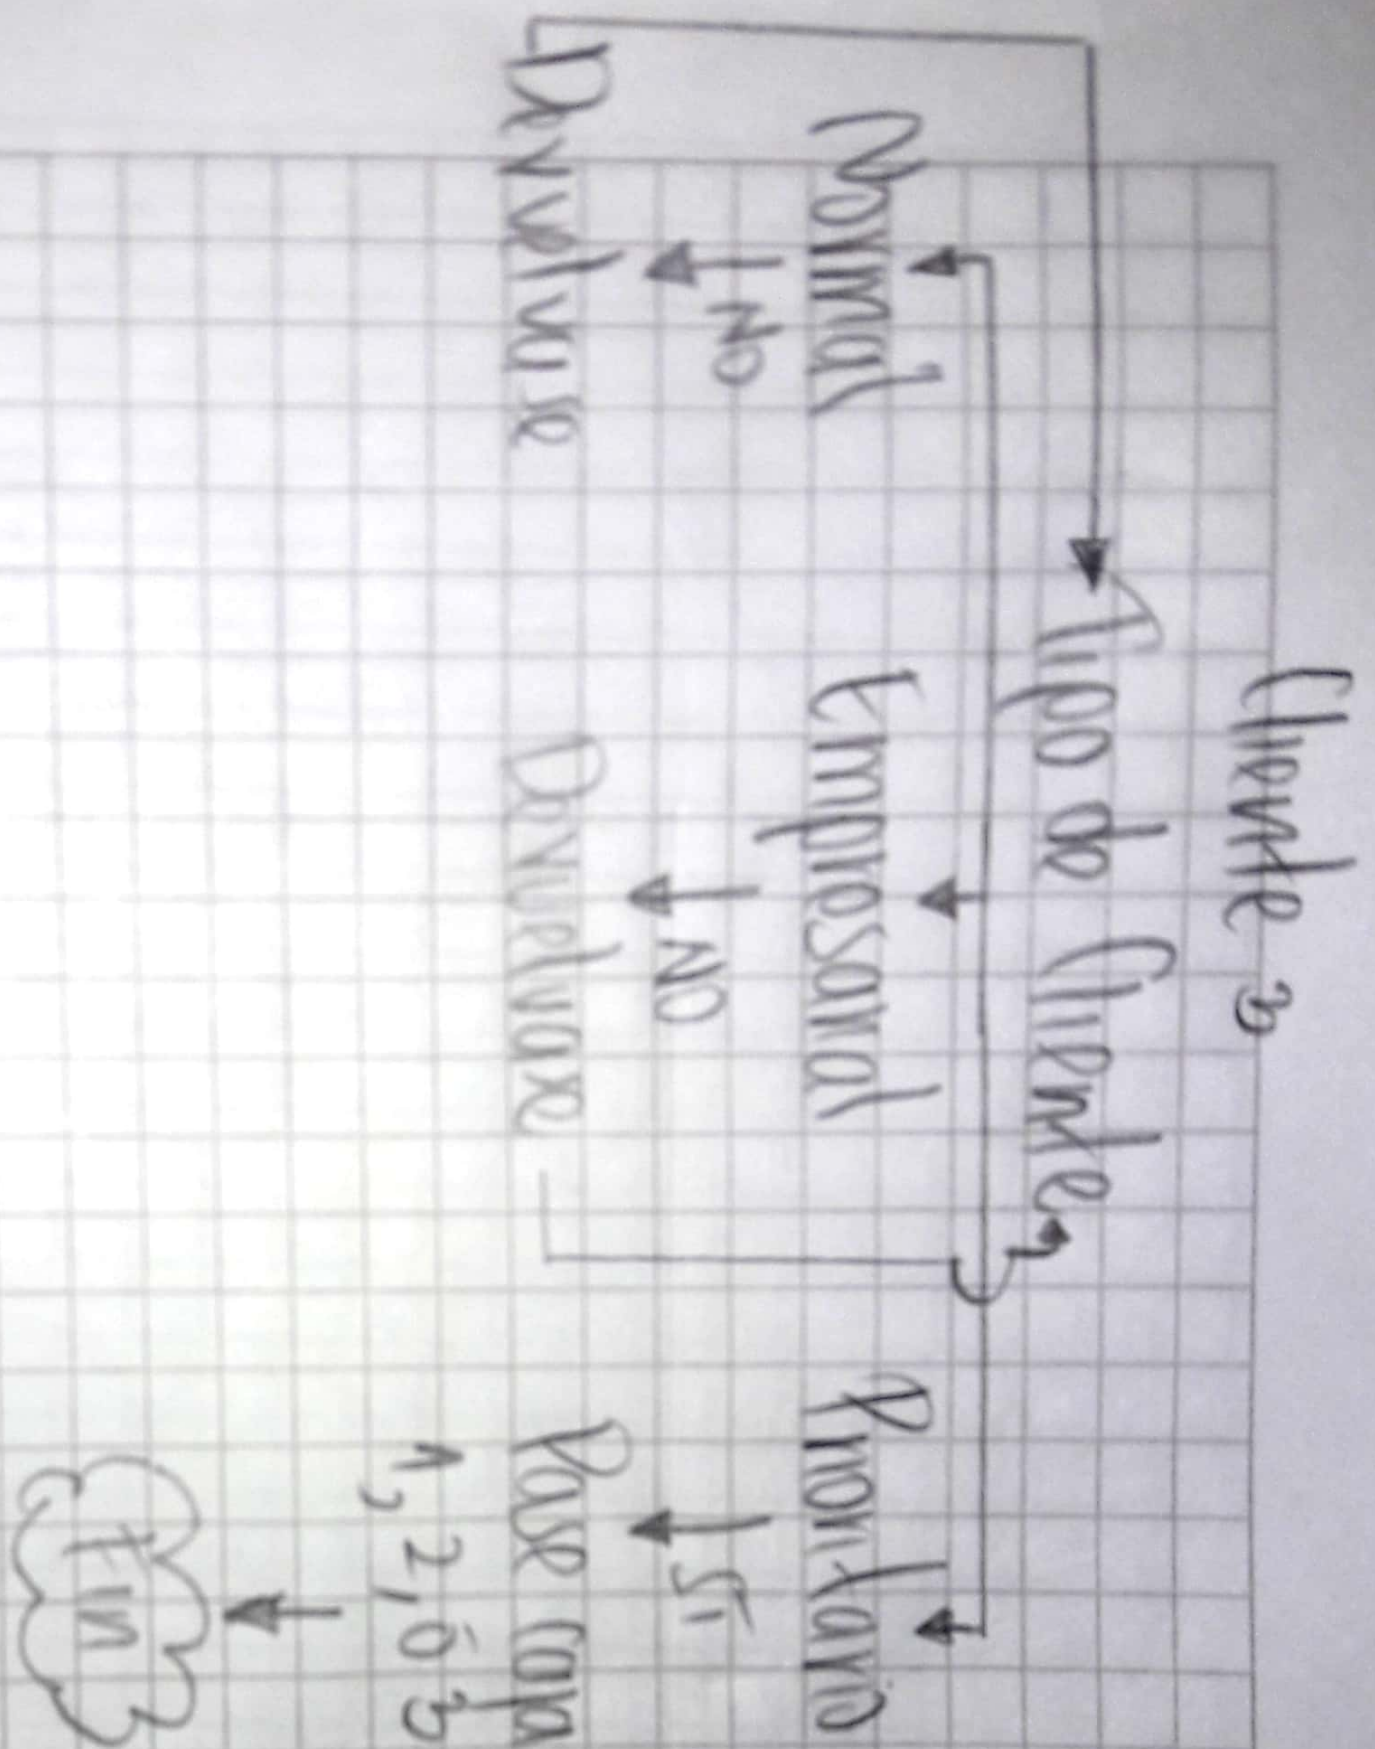 Cliente 3
Tipo de Cliente
Normal Empresarial Prioritario
NO NO SI
Devuelvase Devuelvase Pase caja
1, 2, ó 3
Fin